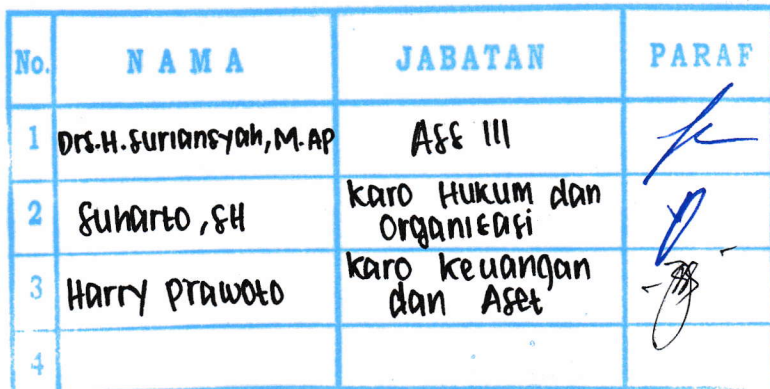 No. NAMA JABATAN PARAF
1 Drs.H.Suriansyah, M.AP Ass III
2 Suharto, SH Karo Hukum dan
Organisasi
3 Harry Prawoto Karo Keuangan
dan Aset
4